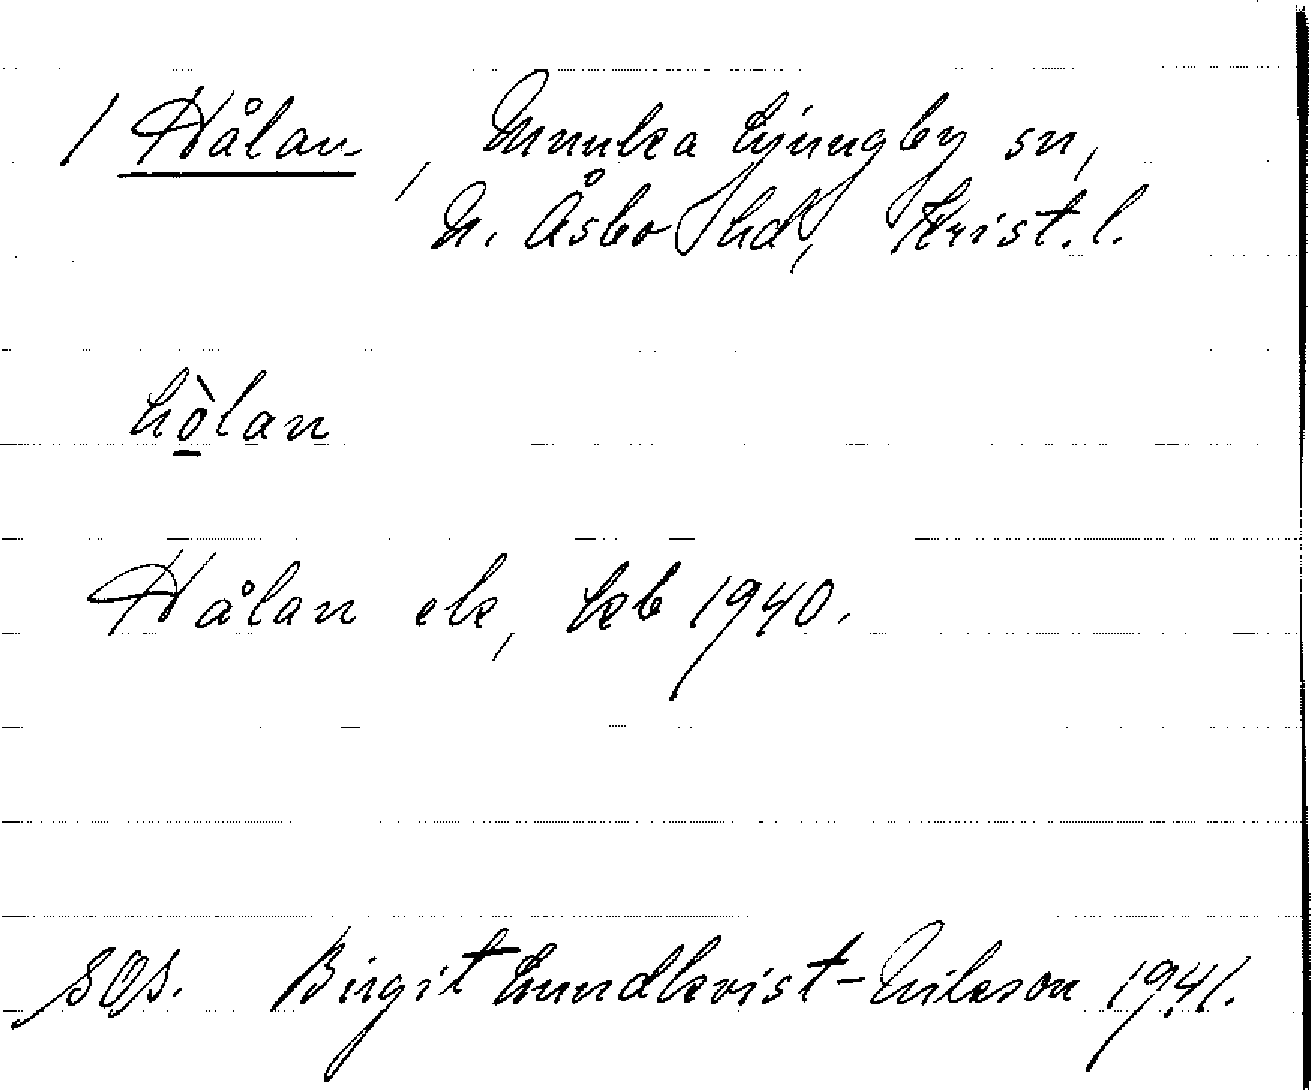 / Hålan, Munka Ljungby sn,
N. Åsbo hd, Krist. l.
hòlan
Hålan ek, 1940.
SOS. Birgit Lundkvist-Nilsson 1941.